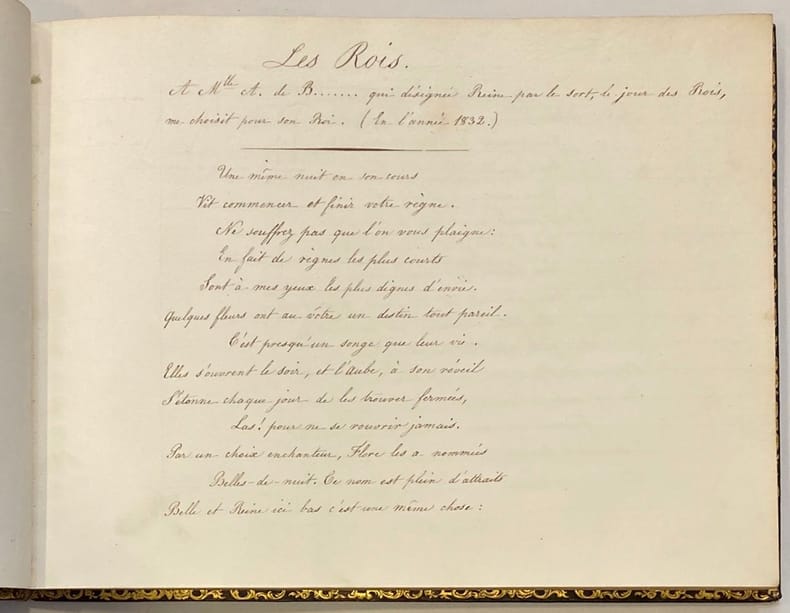 Les Rois.
A Mlle A. de B....... qui désignée Reine par le sort, le jour des Rois,
me choisit pour son Roi. (En l'année 1832.)
Une même nuit en son cours
Vit commencer et finir votre règne.
Ne souffrez pas que l'on vous plaigne:
En fait de règnes les plus courts
Sont à mes yeux les plus dignes d'envie.
Quelques fleurs ont au vôtre un destin tout pareil.
C'est presqu'un songe que leur vie.
Elles s'ouvrent le soir, et l'aube, à son réveil
S'étonne chaque jour de les trouver fermées,
Las! pour ne se rouvrir jamais.
Par un choix enchanteur, Flore les a nommées
Belles-de-nuit. Ce nom est plein d'attraits
Belle et Reine ici bas c'est une même chose: